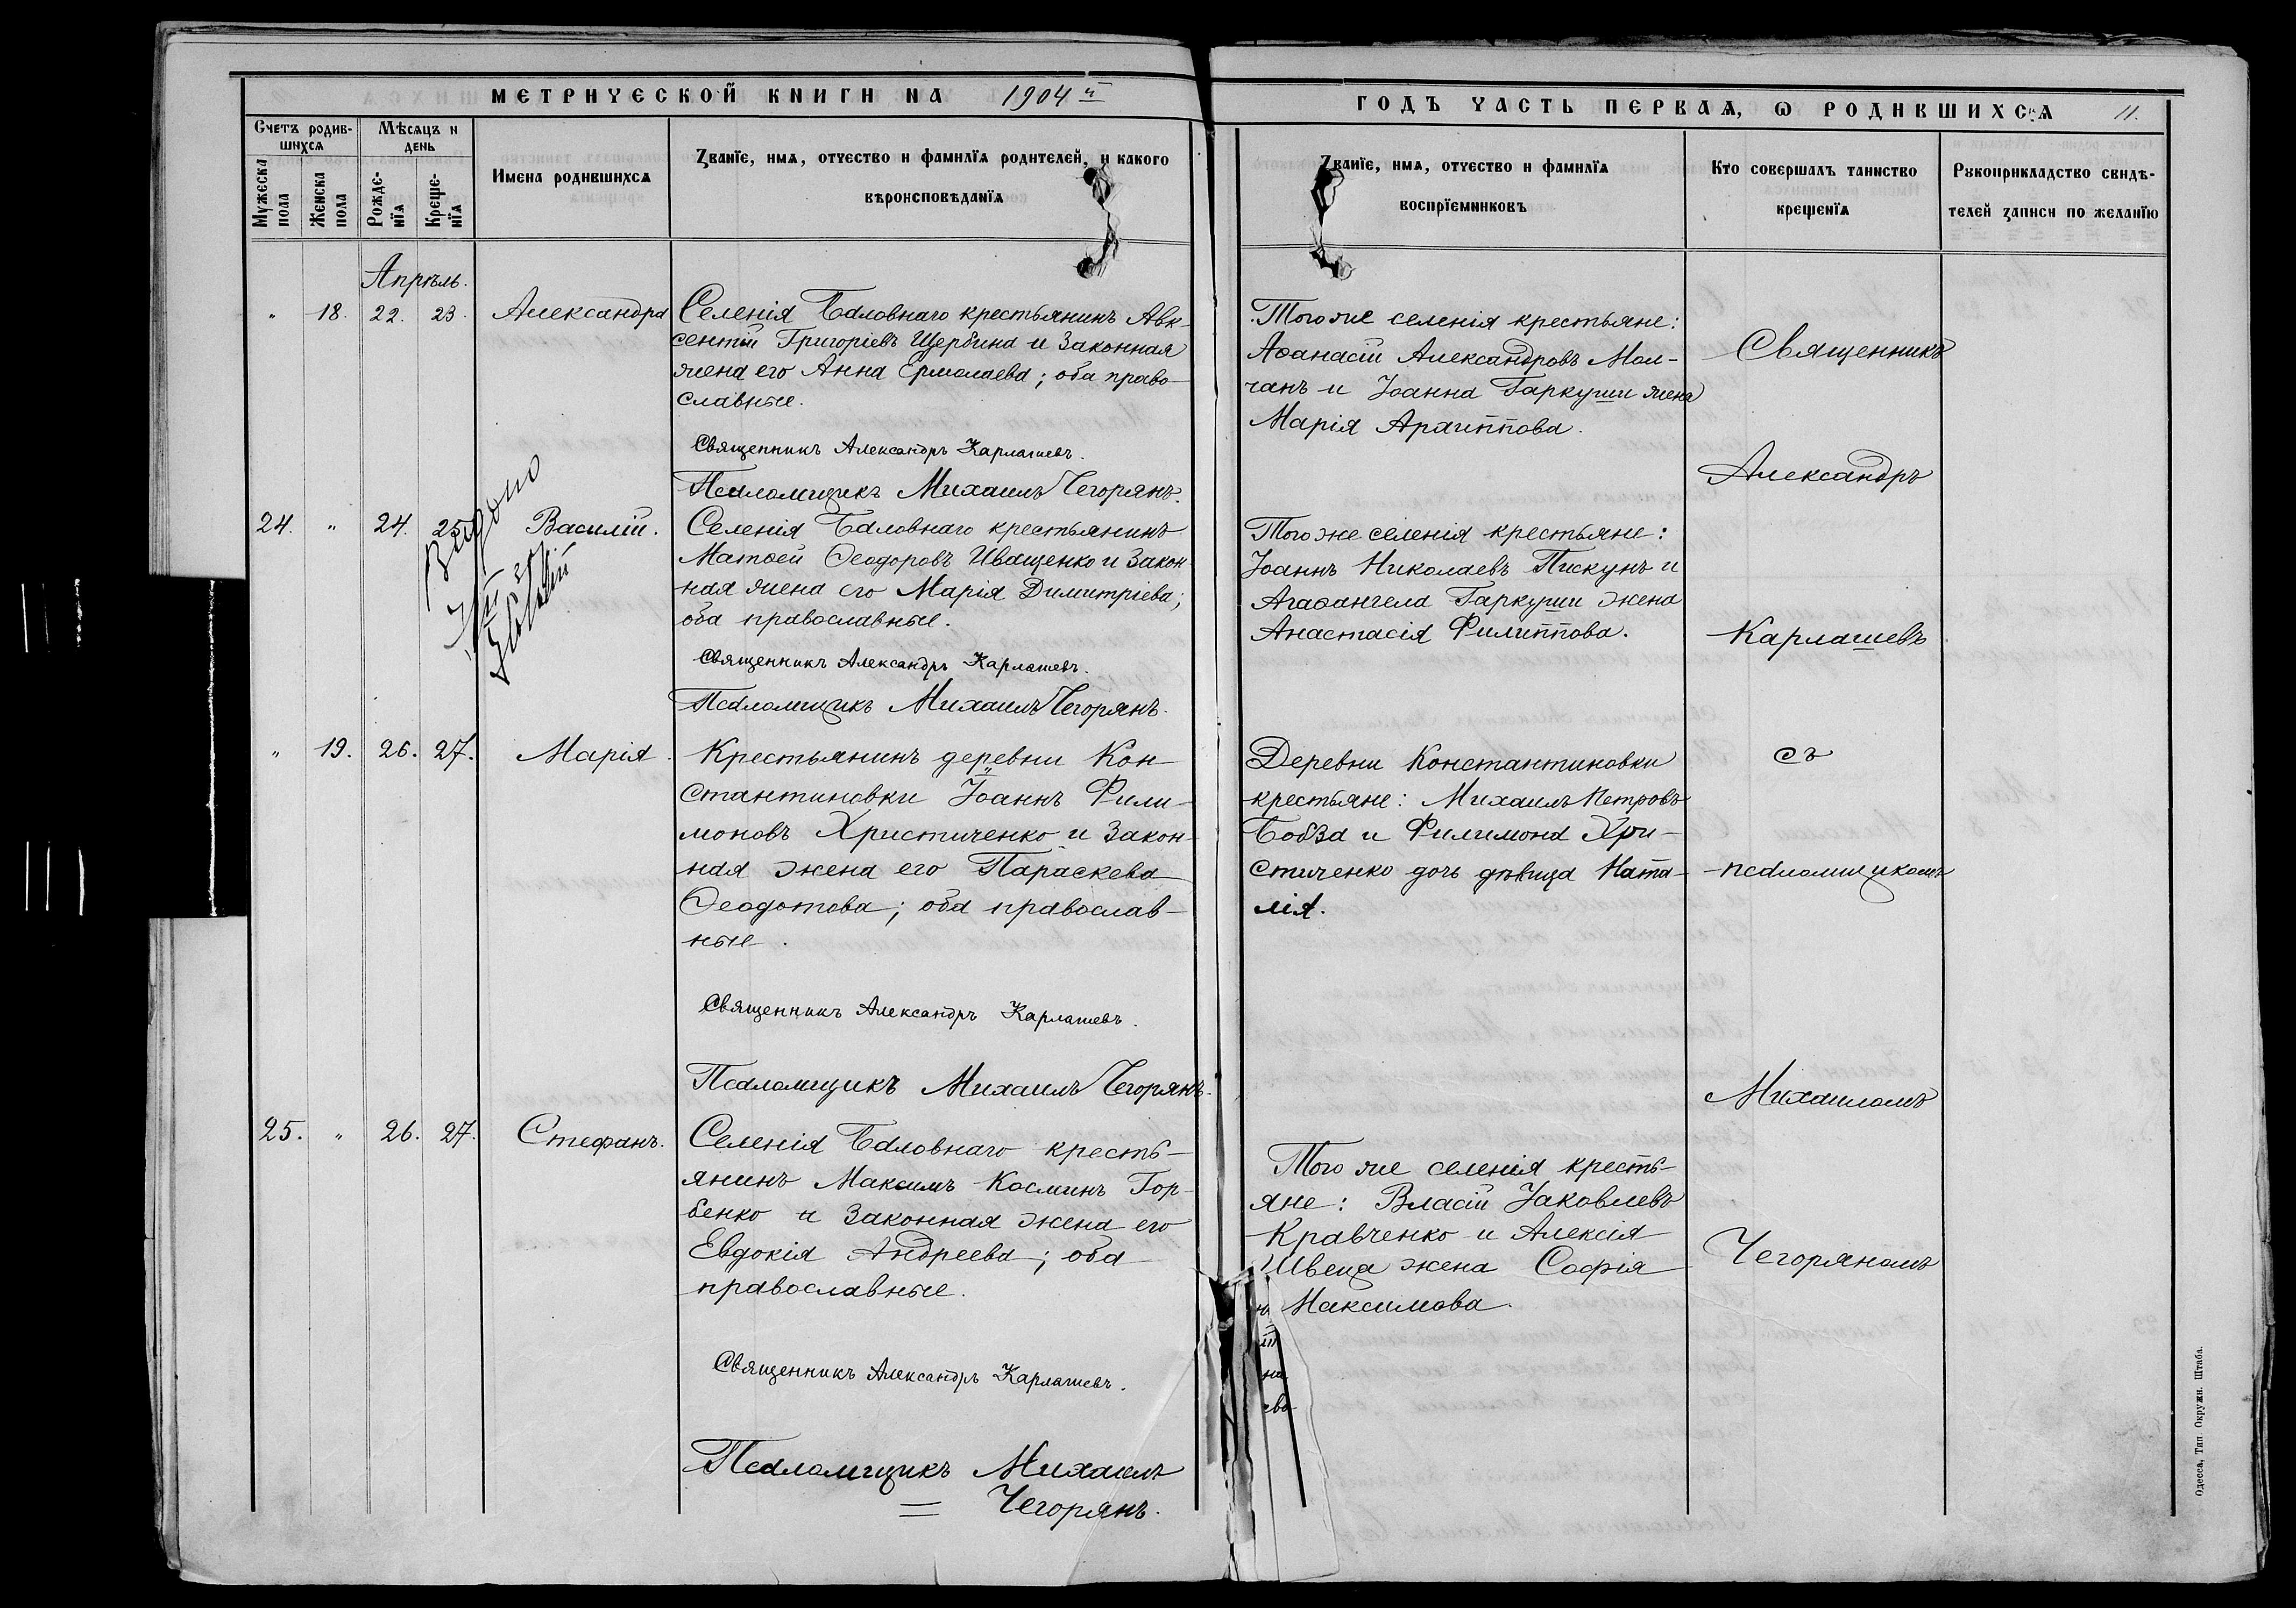 МЕТРИЧЕСКОЙ КНИГИ НА 1904 й
ГОДЪ ЧАСТЬ ПЕРВАЯ, Ѡ РОДИВШИХСЯ 11.
Счетъ родив-
шихся
Мѣсяцъ и
день
Мужеска
пола
Женска
пола
Рожде-
нїя
Креще-
нїя
Имена родившихся
Званїе, имя, отчество и фамилїя родителей, и какого
вѣроисповѣданїя
Званїе, имя, отчество и фамилїя
воспрїемниковъ
Кто совершалъ таинство
крещенїя
Рукоприкладство свидѣ-
телей записи по желанїю
Апрѣль.
" 18. 22. 23. Александра
Селенія Баловнаго крестьянинъ Авк-
сентій Григоріевъ Щербина и законная
жена его Анна Ермолаева; оба право-
славные.
Священникъ Александръ Карлашевъ.
Псаломщикъ Михаилъ Чегорянъ.
Того же селенія крестьяне:
Аѳанасій Александровъ Мол-
чанъ и Іоанна Гаркуши жена
Марія Архиппова.
24. " 24. 25. Василій.
Селенія Баловнаго крестьянинъ
Матѳей Ѳеодоровъ Иващенко и закон-
ная жена его Марія Димитріева;
оба православные.
Священникъ Александръ Карлашевъ.
Псаломщикъ Михаилъ Чегорянъ.
Того же селенія крестьяне:
Іоаннъ Николаевъ Пискунъ и
Агаѳангела Гаркуши жена
Анастасія Филиппова.
" 19. 26. 27. Марія.
Крестьянинъ деревни Кон-
стантиновки Іоаннъ Фили-
моновъ Христиченко и закон-
ная жена его Параскева
Ѳеодотова; оба православ-
ные.
Священникъ Александръ Карлашевъ.
Псаломщикъ Михаилъ Чегорянъ.
Деревни Константиновки
крестьяне: Михаилъ Петровъ
Бобза и Филимона Хри-
стиченко дочь дѣвица Ната-
лія.
25. " 26. 27. Стефанъ.
Селенія Баловнаго кресть-
янинъ Максимъ Косминъ Гор-
бенко и законная жена его
Евдокія Андреева; оба
православные.
Священникъ Александръ Карлашевъ.
Псаломщикъ Михаилъ
Чегорянъ.
Того же селенія кресть-
яне: Власій Іаковлевъ
Кравченко и Алексія
Швеца жена Софія
Максимова.
Священникъ
Александръ
Карлашевъ
съ
псаломщикомъ
Михаиломъ
Чегоряномъ
Одесса, Тип. Окружн. Штаба.